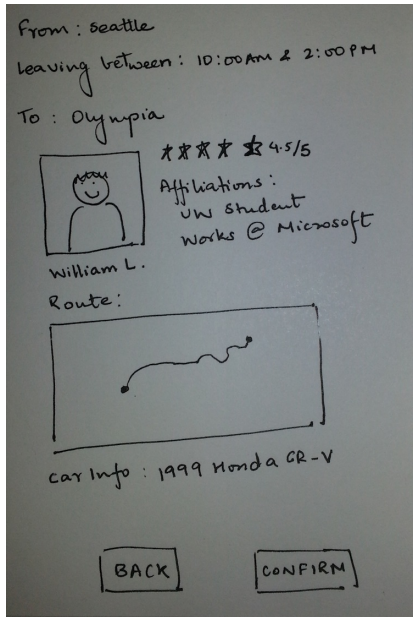 From : Seattle
Leaving between : 10:00AM & 2:00PM
To : Olympia
4.5/5
Affiliations :
UW Student
Works @ Microsoft
William L.
Route :
Car Info : 1999 Honda CR-V
BACK
CONFIRM